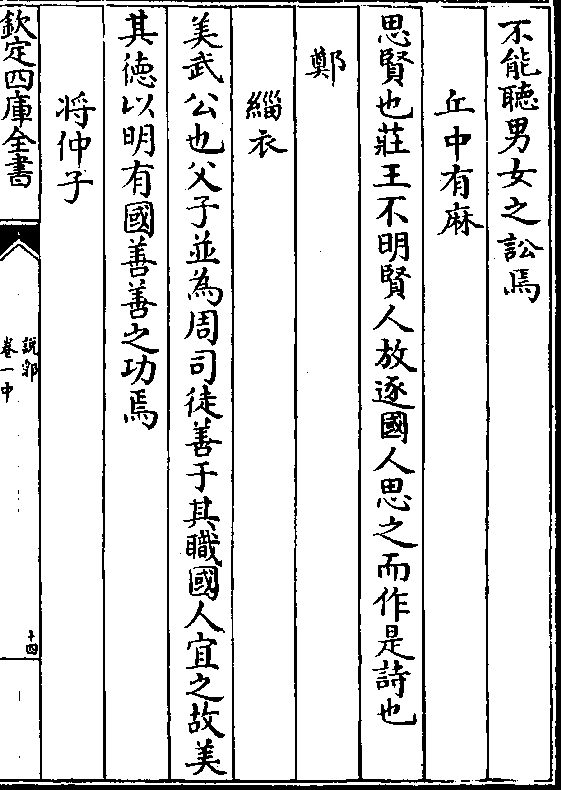 不能聽男女之訟焉
丘中有麻
思賢也莊王不明賢人放逐國人思之而作是詩也
鄭
緇衣
美武公也父子並為周司徒善于其職國人宜之故美
其徳以明有國善善之功焉
将仲子
欽定四庫全書
說郛
卷一中
十四